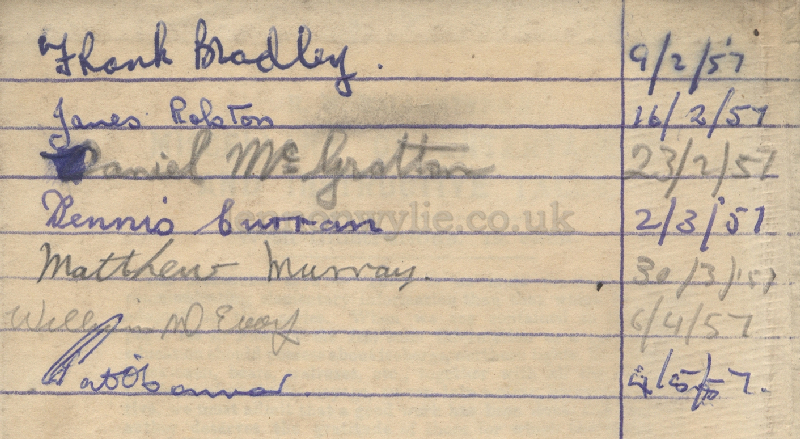 Frank Bradley. 9/2/57
James Rolston 16/2/57
Daniel McGrattan 23/2/57
Dennis Curran 2/3/57
wylie.co.uk
Matthew Murray. 30/3/57
William McEvoy 6/4/57
Pat O'Connor. 4/5/57.